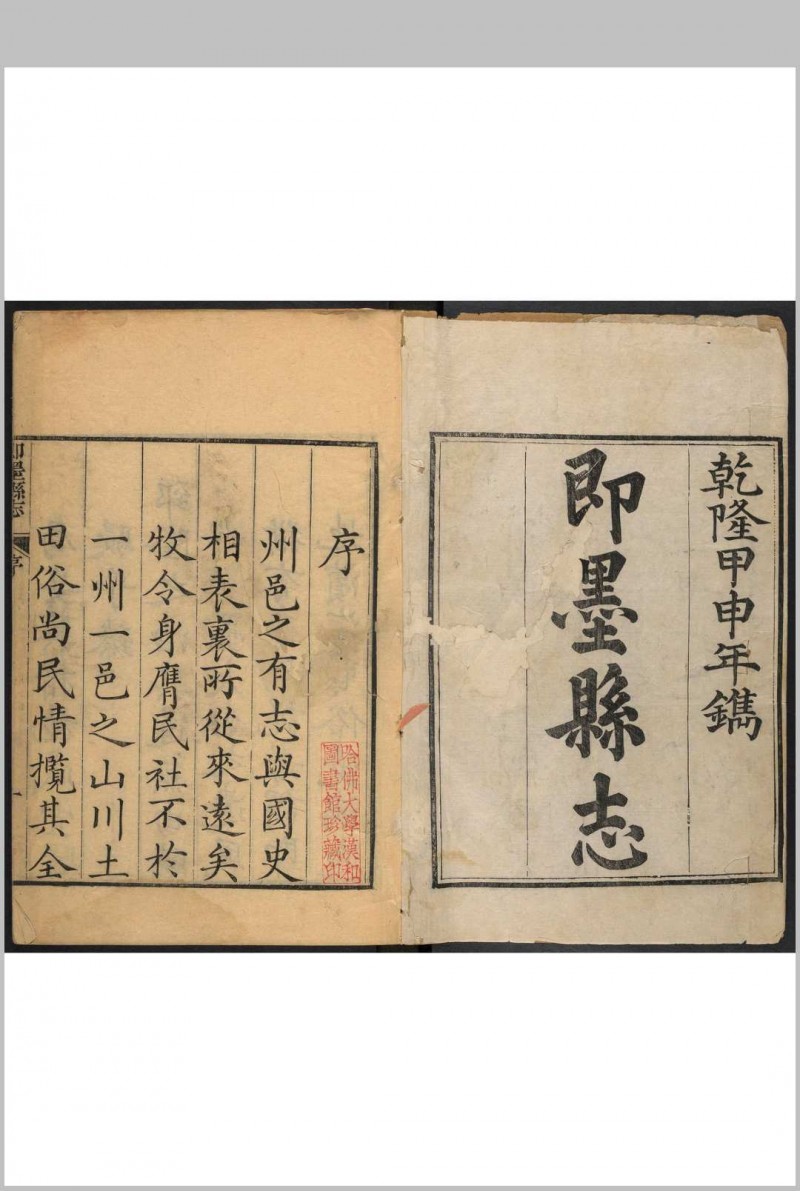 乾隆甲申年鐫
即墨縣志
序
哈佛大學漢和
圖書館珍藏印
州邑之有志與國史
相表裏所從來遠矣
牧令身膺民社不於
一州一邑之山川土
田俗尚民情攬其全
即墨縣志
序
一